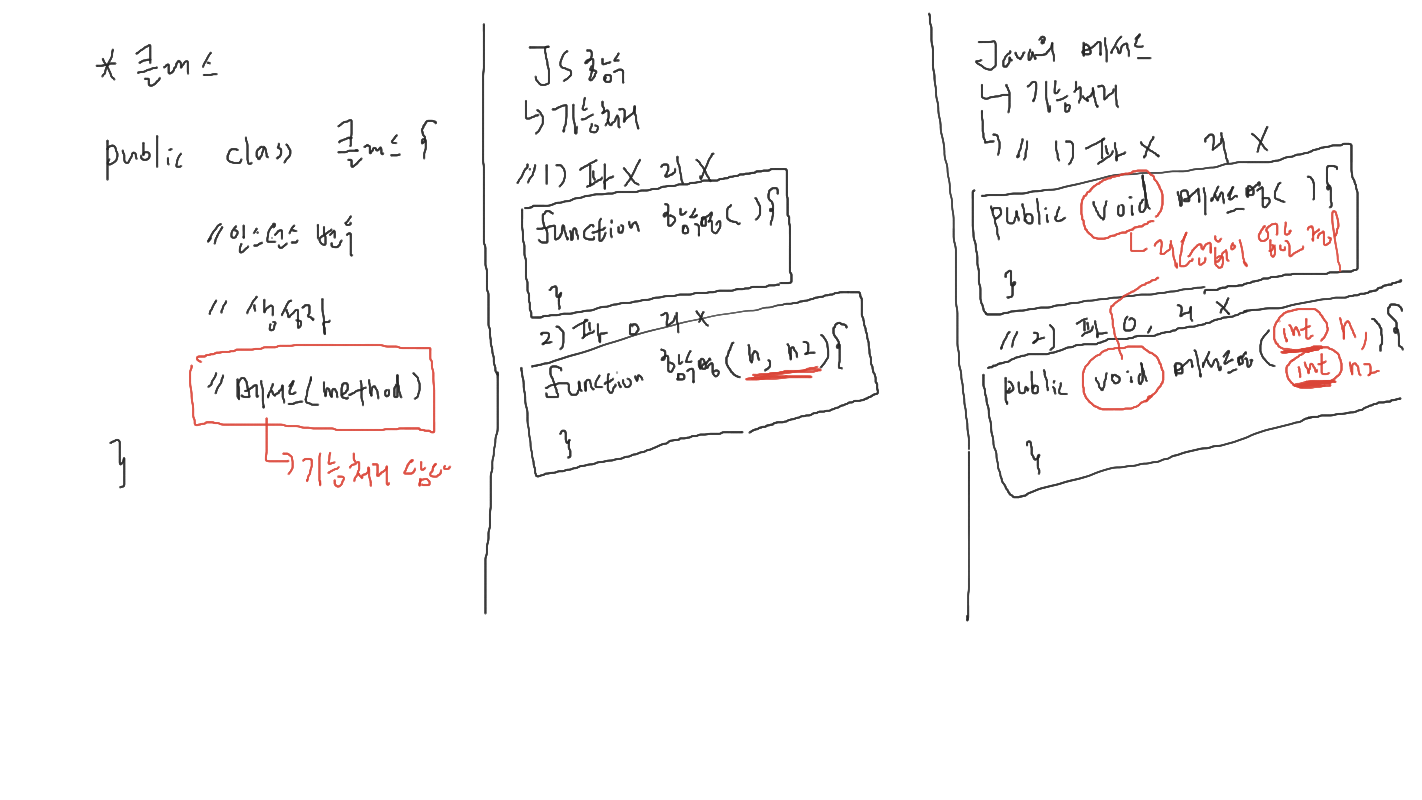 * 클래스
public class 클래스 {
//인스턴스 변수
// 생성자
// 메서드(method)
기능처리 담당
}
JS 함수
기능처리
//1) 파 X 리 X
function 함수명( ){
}
2) 파 O 리 X
function 함수명(n, n2){
}
Java의 메서드
기능처리
// 1) 파 X 리 X
public void 메서드명( ){
리턴값이 없을 때
}
// 2) 파 O, 리 X
public void 메서드명(int n, ){
int n2
}